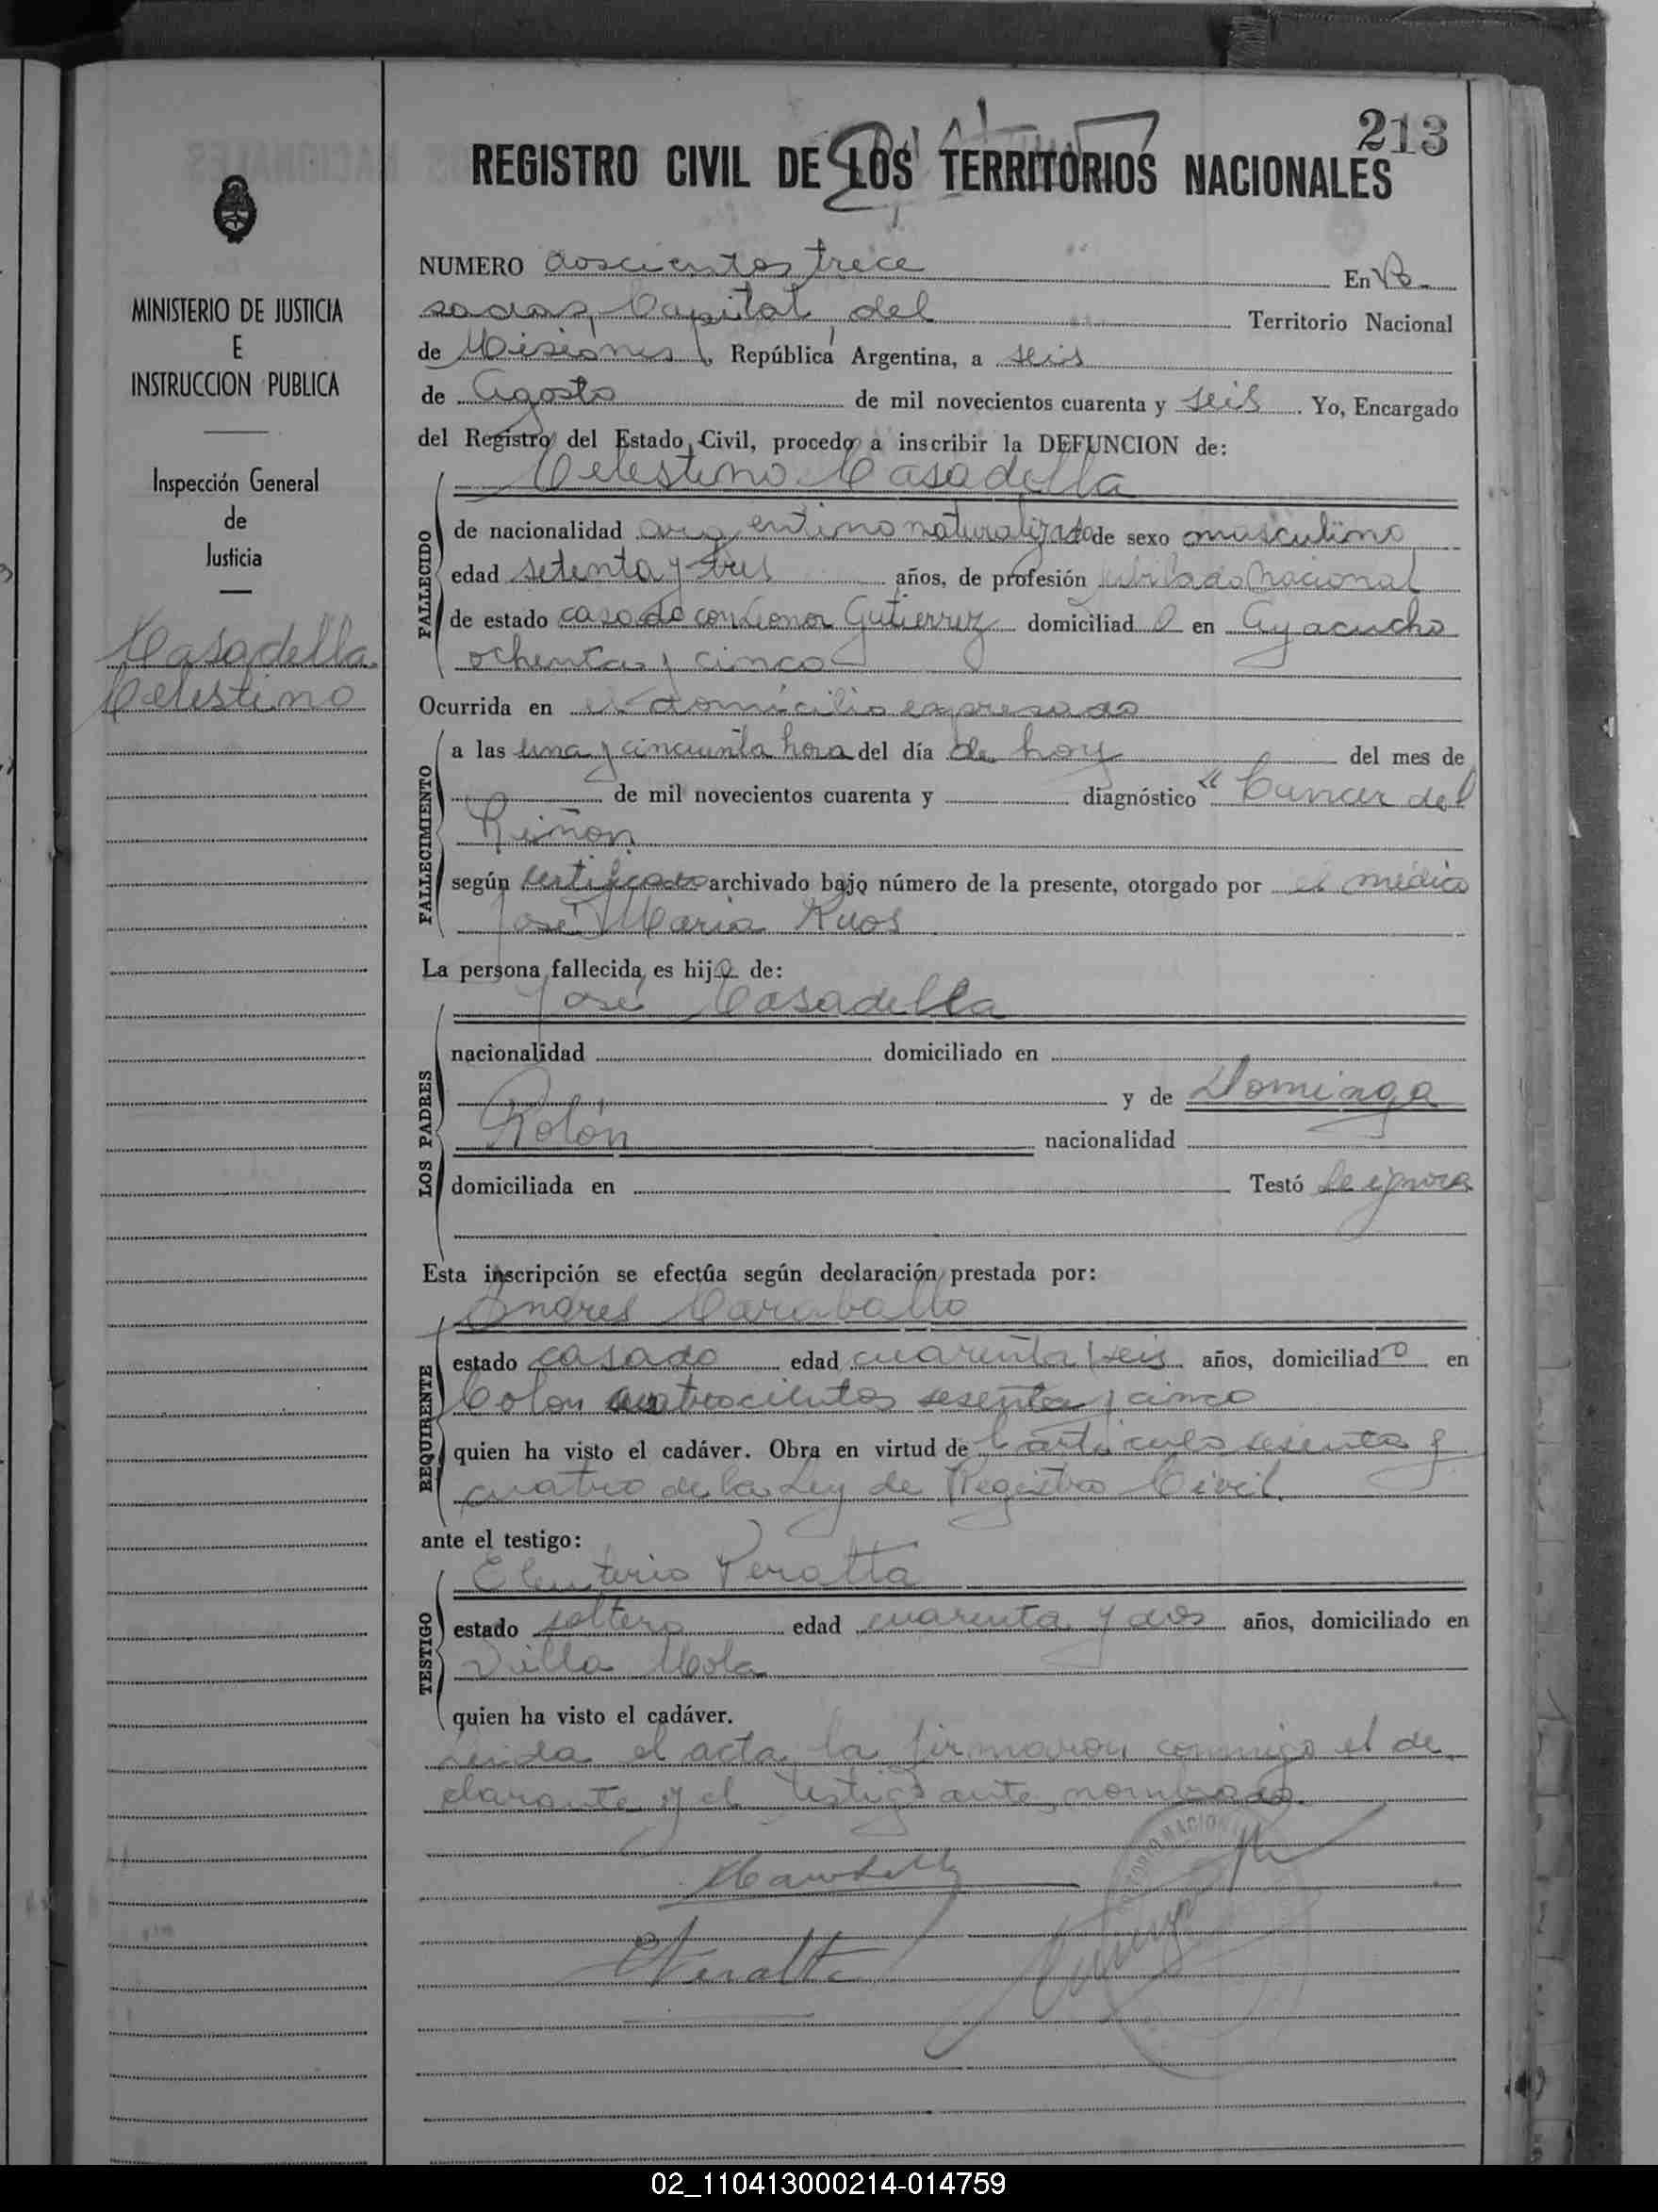 213
REGISTRO CIVIL DE LOS TERRITORIOS NACIONALES
MINISTERIO DE JUSTICIA
E
INSTRUCCION PUBLICA
Inspección General
de
Justicia
Casadella
Celestino
NUMERO doscientos trece En Po-
sadas, Capital del Territorio Nacional
de Misiones, República Argentina, a seis
de Agosto de mil novecientos cuarenta y seis. Yo, Encargado
del Registro del Estado Civil, procedo a inscribir la DEFUNCION de:
Celestino Casadella
FALLECIDO
de nacionalidad argentino naturalizado de sexo masculino
edad setenta y tres años, de profesión jubilado Nacional
de estado casado con Leonor Gutierrez domiciliado en Ayacucho
ochenta y cinco
Ocurrida en el domicilio expresado
FALLECIMIENTO
a las una y cincuenta hora del día de hoy del mes de
de mil novecientos cuarenta y diagnóstico "Cancer del
Riñon
según certificado archivado bajo número de la presente, otorgado por el médico
José Maria
La persona fallecida es hijo de:
José Casadella
LOS PADRES
nacionalidad domiciliado en
y de Dominga
Rolón nacionalidad
domiciliada en Testó Se ignora
Esta inscripción se efectúa según declaración prestada por:
Andres Caraballo
REQUIRENTE
estado casado edad cuarenta y seis años, domiciliado en
Colon cuatrocientos sesenta y cinco
quien ha visto el cadáver. Obra en virtud de l articulo sesenta y
cuatro de la Ley de Registro Civil.
ante el testigo:
Eleuterio Peralta
TESTIGO
estado soltero edad cuarenta y dos años, domiciliado en
Villa Mola
quien ha visto el cadáver.
Leida el acta la firmaron conmigo el de
clarante y el testigo antes nombrado.
EPeralta
02_110413000214-014759